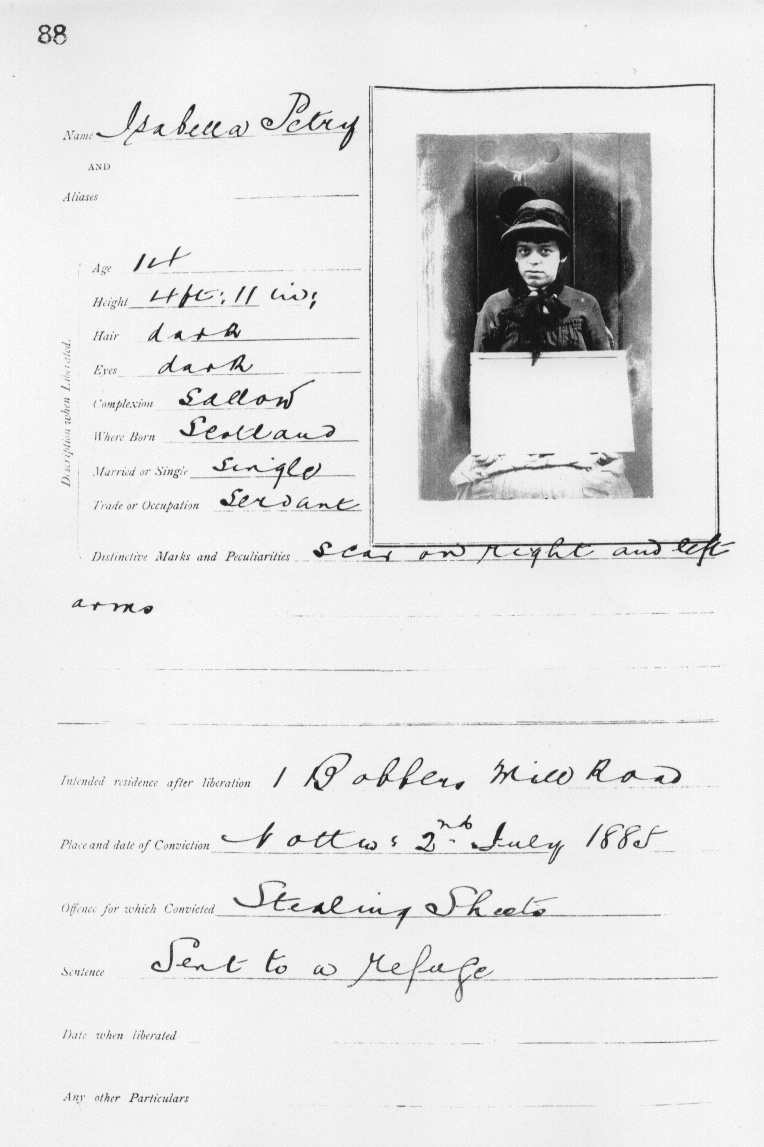 88
Name Isabella Petry
AND
Aliases
Description when Liberated.
Age 14
Height 4ft: 11 ins:
Hair dark
Eyes dark
Complexion Sallow
Where Born Scotland
Married or Single Single
Trade or Occupation Servant
Distinctive Marks and Peculiarities Scar on right and left
arms
Intended residence after liberation 1 Bobbers Mill Road
Place and date of Conviction Nottm: 2nd July 1885
Offence for which Convicted Stealing Sheets
Sentence Sent to a refuge
Date when liberated
Any other Particulars